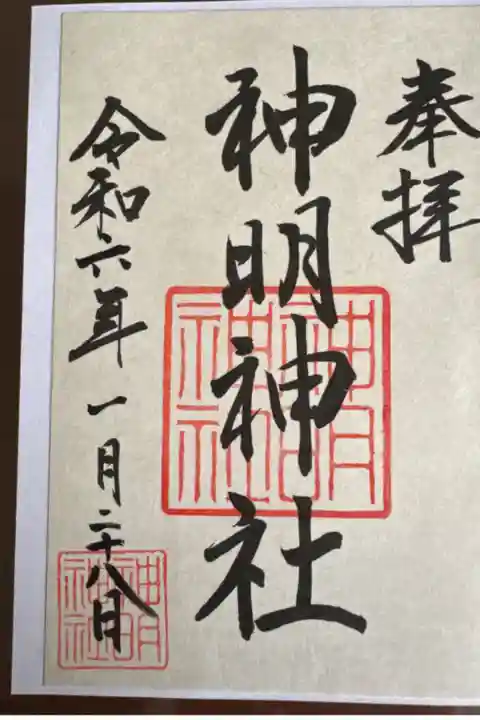 奉拝
神明神社
令和六年一月二十八日
神明
神社
神明
神社